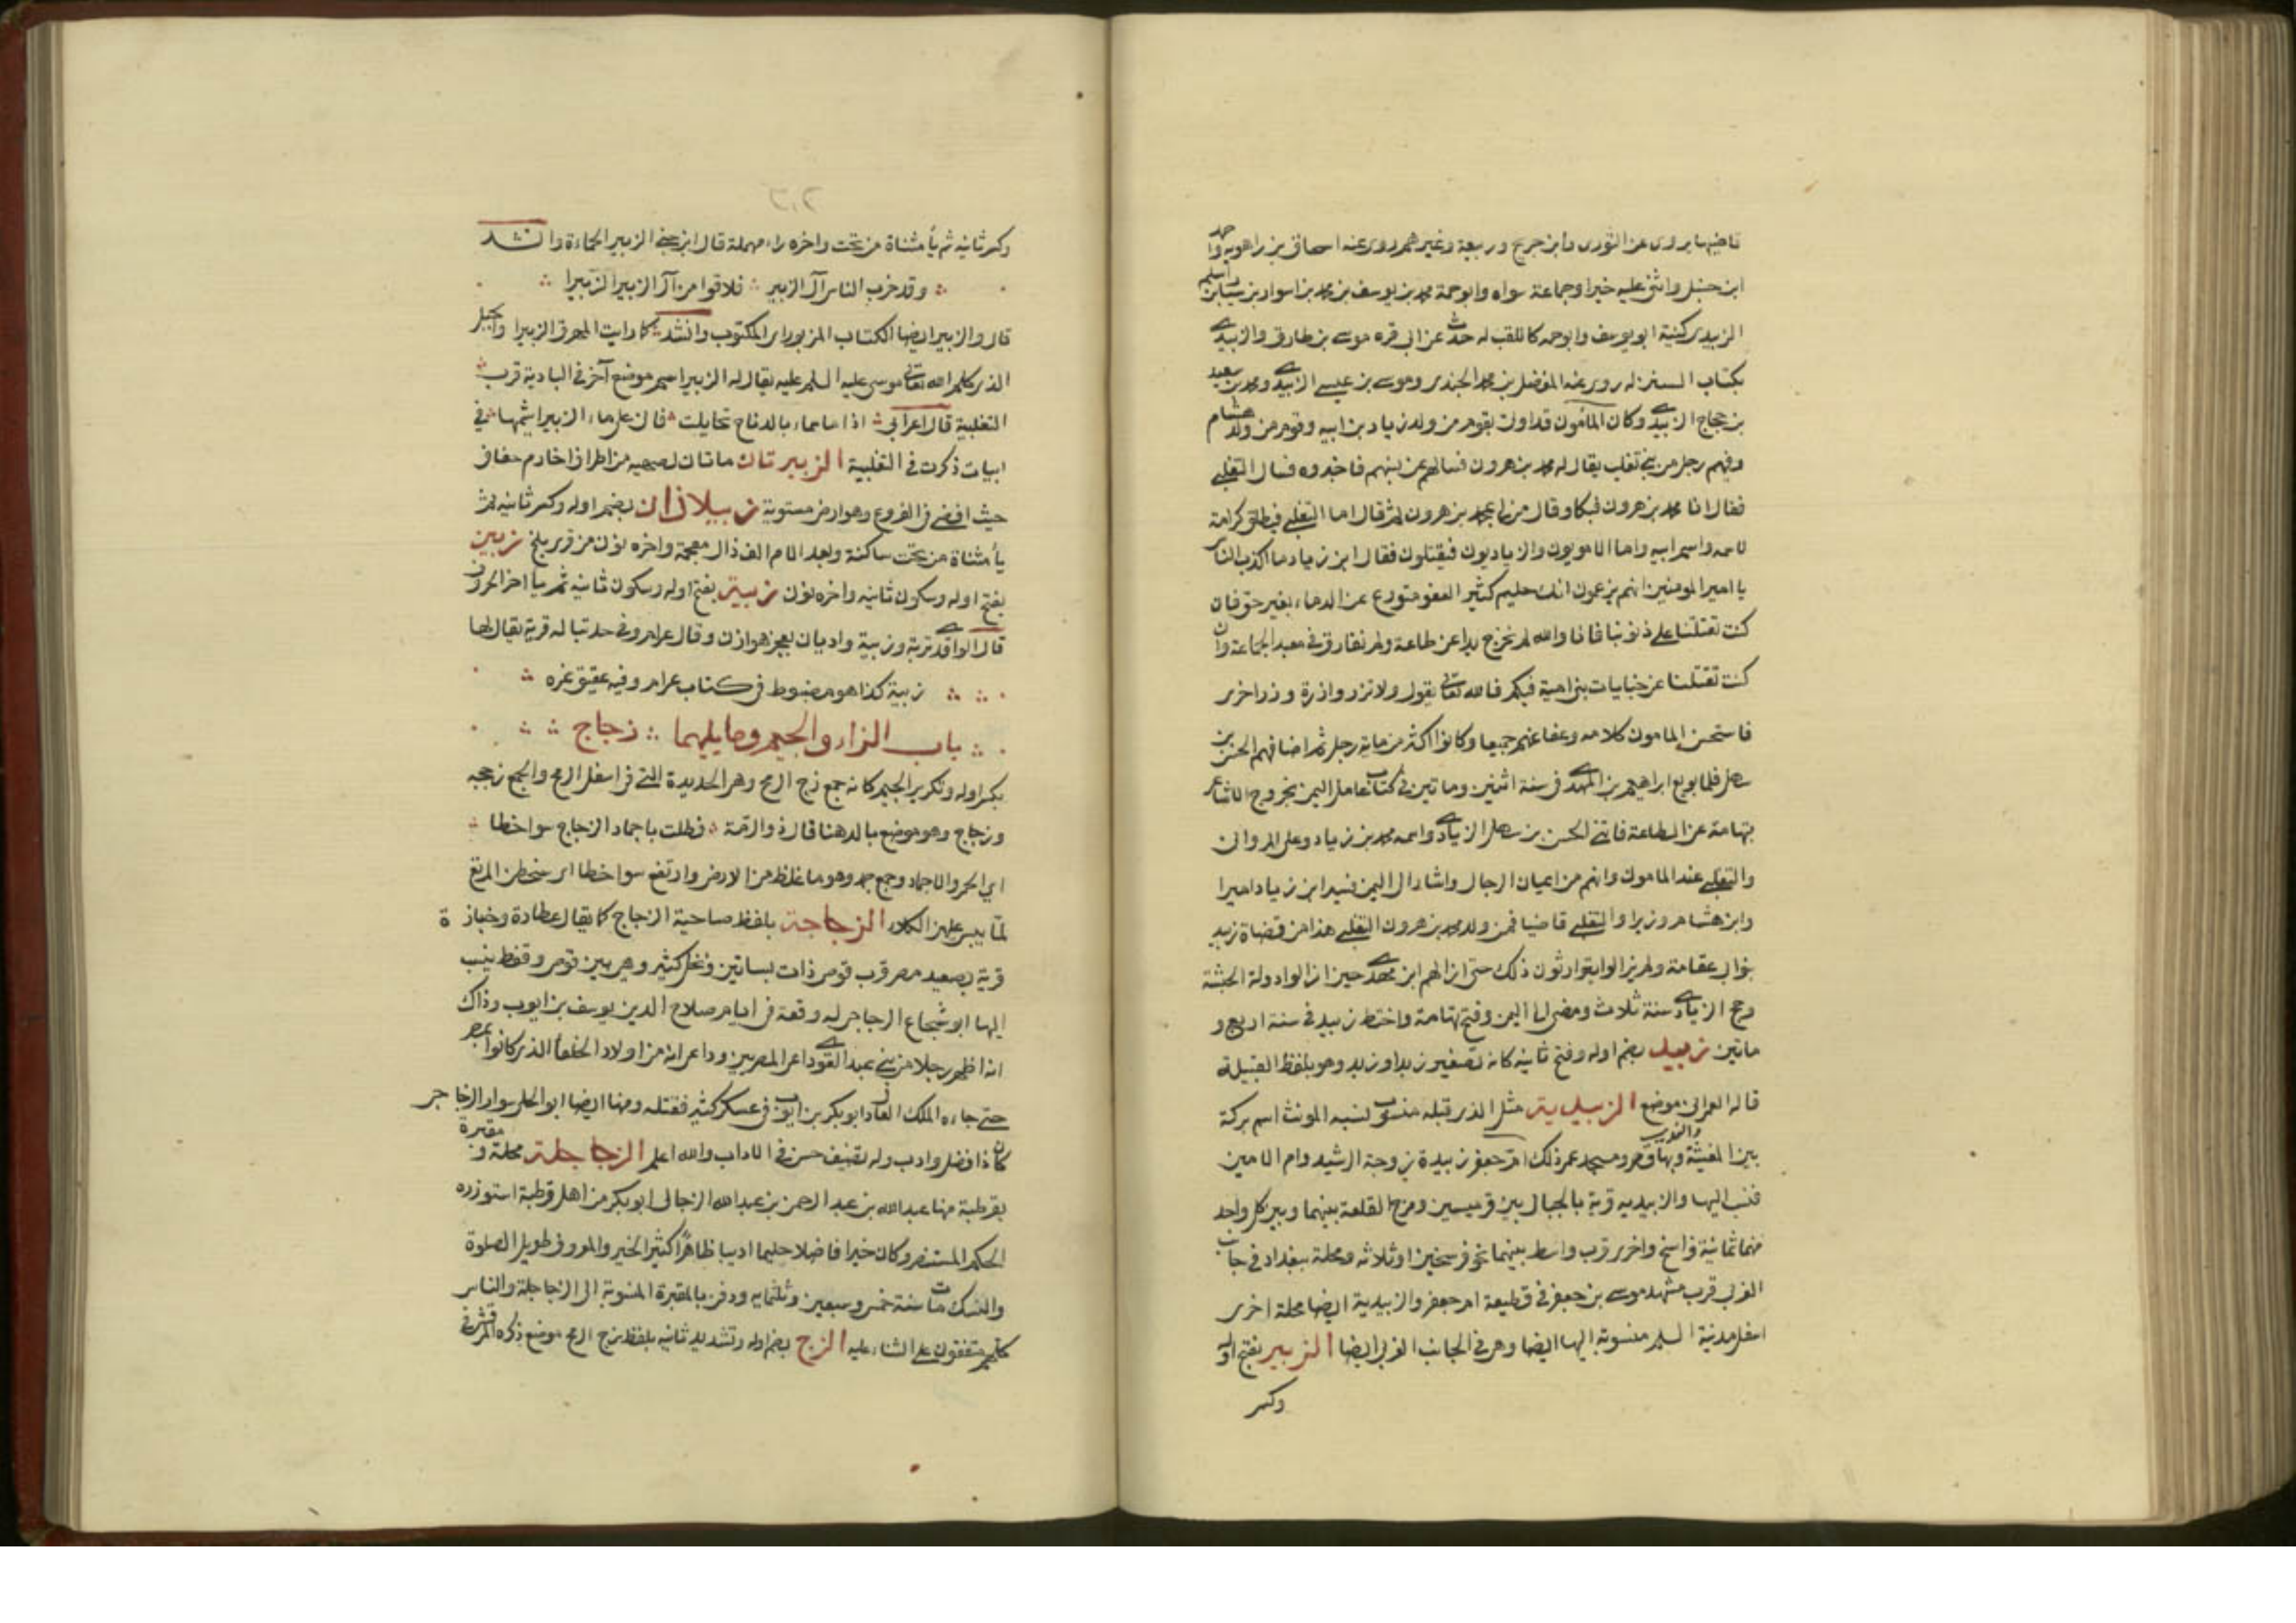 قاضيها يروى عن الثورى وابن جريج وربيعة وغيرهم روى عنه اسحاق بن راهويه واحمد
ابن حنبل واثنى عليه خيرا وجماعة سواه وابو حمة محمد بن يوسف بن محمد بن اسوار بن سيار بن اسلم
الزبيدى كنيته ابو يوسف وابو حمه كاللقب له حدث عن ابى قره موسى بن طارق والزبيدى
بكتاب السنن له روى عنه المفضل بن محمد الجندى وموسى بن عيسى الزبيدى ومحمد بن سعيد
بن حجاج الزبيدى وكان المأمون قد اوتى بقوم من ولد زياد بن ابيه وقوم من ولد هشام
وفيهم رجل من بنى تغلب يقال له محمد بن هرون فسالهم عن نسبهم فاخبروه فسال التغلبى
فقال انا محمد بن هرون فبكا وقال من لى بمحمد بن هرون ثم قال اما التغلبى فيطلق كرامة
لاسمه واسم ابيه واما الامويون والزياديون فيقتلون فقال ابن زياد ما اكذب الناس
يا امير المومنين انهم يزعمون انك حليم كثير العفو متورع عن الدماء بغير حق فان
كنت تقتلنا على ذنوبنا فانا والله لم نخرج يدا عن طاعة ولم نفارق فى معبد الجماعة وان
كنت تقتلنا عن جنايات بنى امية فيكم فالله تعالى يقول ولا تزر وازرة وزر اخرى
فاستحسن المامون كلامه وعفا عنهم جميعا وكانوا اكثر من ماية رجل ثم اضافهم الحسن بن
سهل فلما بويع ابراهيم بن المهدى فى سنة اثنين وماتين فى كتاب عامل اليمن بخروج الاشاعر
بتهامة عن الطاعة فاثنى الحسن بن سهل الزيادى واسمه محمد بن زياد وعلى المروانى
والتغلبى عند المامون وانهم من اعيان الرجال واشار الى اليمن فسير ابن زياد اميرا
وابن هشام وزيرا والتغلبى قاضيا فمن ولد محمد بن هرون التغلبى هذا من قضاة زبيد
بنو ابى عقامة ولم يزالوا يتوارثون ذلك حتى ازالهم ابن مهدى حين ازالوا دولة الحبشة
وحج الزيادى سنة ثلاث ومضى الى اليمن وفتح تهامة واختط زبيد فى سنة اربع و
ماتين زبيد بضم اوله وفتح ثانيه كانه تصغير زبد او زبد وهو بلفظ القبيلة
قاله العمرانى موضع الزبيدية مثل الذى قبله منسوب نسبه المونث اسم بركة
بين المغيثة والعذيب وبها قصر ومسجد عمر ذلك ام جعفر زبيدة زوجة الرشيد وام الامين
فنسب اليها والزبيديه قرية بالجبال بين قرميسين ومرج القلعة بينهما وبين كل واحد
منهما ثمانية فراسخ واخرى قرب واسط بينهما نحو فرسخين او ثلاثه ومحلة ببغداد فى جانب
الغربى قرب مشهد موسى بن جعفر فى قطيعة ام جعفر والزبيدية ايضا محلة اخرى
اسفل مدينة السلم منسوبة اليها ايضا وهى فى الجانب الغربى ايضا الزبير بفتح اوله
وكسر
وكسر ثانيه ثم يأ مثناة من تحت واخره راء مهملة قال ابن جنى الزبير الحماءة وانشد
وقد خرب الناس آل الزبير فلاقوا من آل الزبير الزبيرا
قال والزبير ايضا الكتاب المزبور اى المكتوب وانشد كما رايت المهرق الزبيرا والجبل
الذى كلم الله تعالى موسى عليه السلم عليه يقال له الزبير اسم موضع آخر فى البادية قرب
الثعلبية قال اعرابى اذا ما سماء بالدناح تخايلت فانى على ماء الزبير اشيمها فى
ابيات ذكرت فى الثعلبية الزبيرتان ماتان لصهيه من اطراف اخارم خفاف
حيث افضى فى الفروع وهو ارض مستوية زبيلاذان بضم اوله وكسر ثانيه ثم
يأ مثناة من تحت ساكنة وبعد الام الف ذال معجمة واخره نون من قرى بلخ زبين
بفتح اوله وسكون ثانيه واخره نون زبية بفتح اوله وسكون ثانيه ثم يا اخر الحروف
قال الواقدى تربة وزبية واديان بعجز هوازن وقال عرام وفى حد تبالة قرية يقال لها
زبية كذا هو مضبوط فى كتاب عرام وفيه عقيق تمره
باب الزاء والجيم وما يليهما زجاج
بكسر اوله وتكرير الجيم كانه جمع زج الرمح وهى الحديدة التى فى اسفل الرمح والجمع زججه
وزجاج وهو موضع بالدهنا قال ذو الرمة فظلت باجماد الزجاج سواخطا
اى الحمر والاجماد وجمع جمد وهو ما غلظ من الارض وارتفع سواخطا اى سخطن المرتع
لما يبس عليهن الكلاء الزجاجة بلفظ صاحبة الزجاج كما يقال عطارة وخبازة
قرية بصعيد مصر قرب قوص ذات بساتين ونخل كثير وهى بين قوص وقفط ينسب
اليها ابو شجاع الزجاجى له وقعة فى ايام صلاح الدين يوسف بن ايوب وذاك
انه اظهر رجلا من بنى عبد القوى داعى المصريين وداعى انه من اولاد الخلفاء الذى كانوا بمصر
حتى جاءه الملك العادل ابو بكر بن ايوب فى عسكر كثير فقتله ومنها ايضا ابو الحلى سوار الزجاجى
كان ذا فضل وادب وله تصنيف حسن فى الاداب والله اعلم الزجاجلة محلة ومقبرة
بقرطبة منها عبد الله بن عبد الرحمن بن عبد الله الزجالى ابو بكر من اهل قرطبة استوزره
الحكم المستنصر وكان خيرا فاضلا حليما اديبا طاهرا كثير الخير والمعروف طويل الصلوة
والنسك مات سنة خمس وسبعين وثلثمايه ودفن بالمقبرة المنسوبة الى الزجاجلة والناس
كلهم متفقون على الثناء عليه الزج بضم اوله وتشديد ثانيه بلفظ زج الرمح موضع ذكره المرقش فى